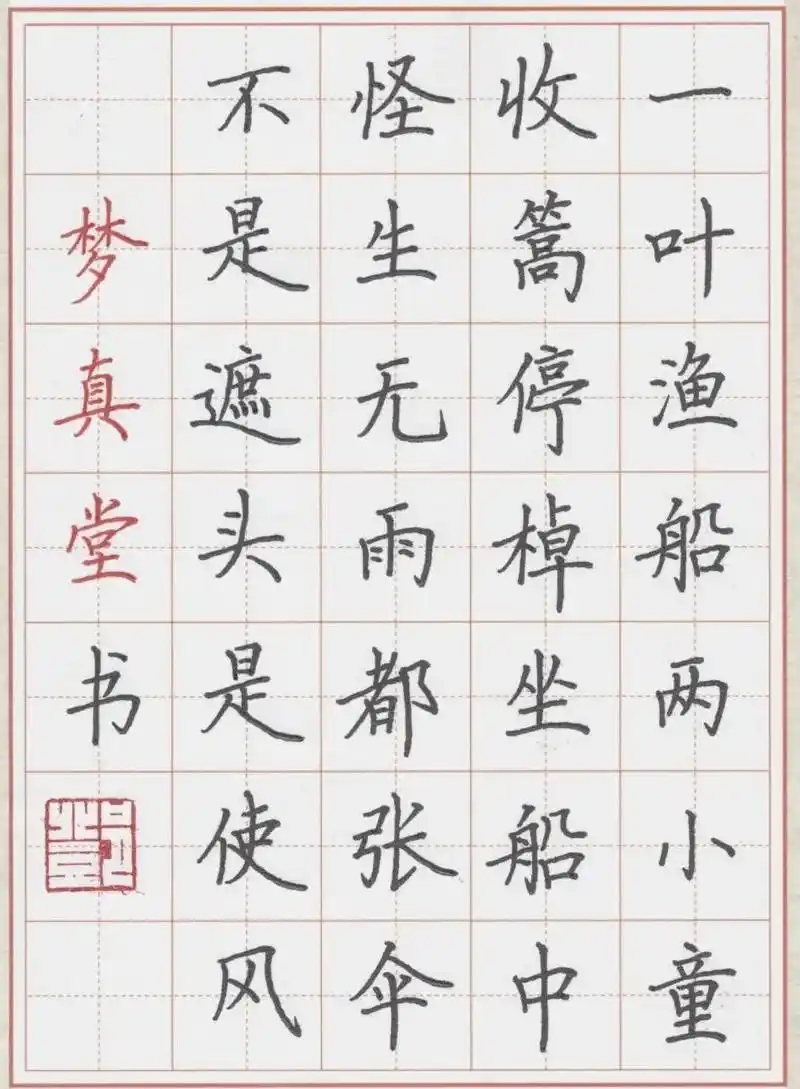 一叶渔船两小童
收篙停棹坐船中
怪生无雨都张伞
不是遮头是使风
梦真堂书